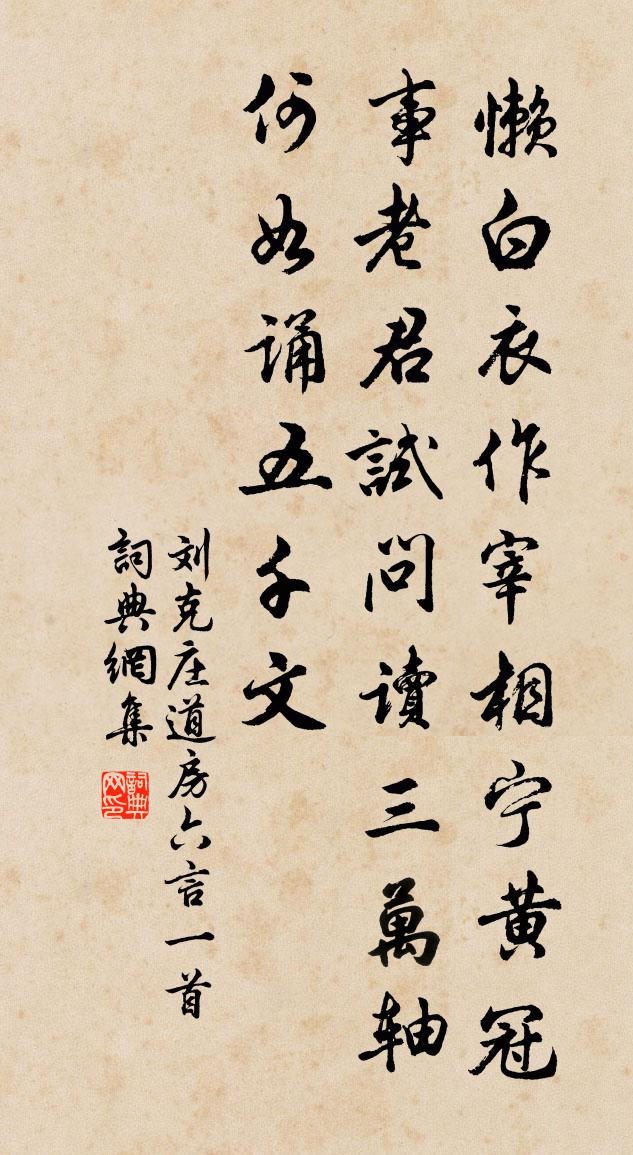 懒白衣作宰相宁黄冠
事老君試问讀三萬轴
何如诵五千文
刘克庄道房六言一首
詞典網集
詞典网印